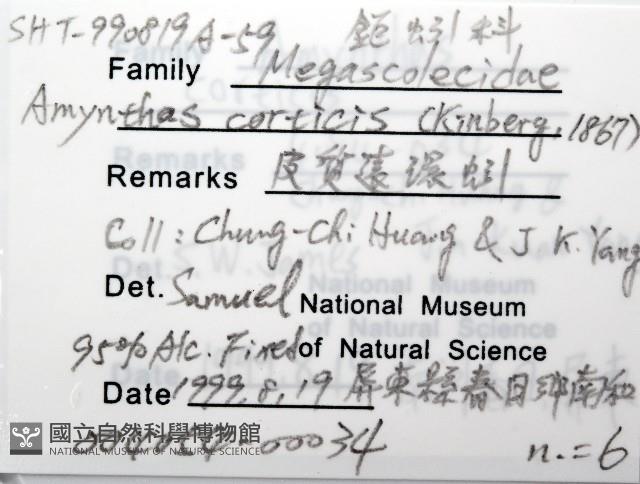 SHT-990819A-59 鉅蚓科
Family Megascolecidae
Amynthas corticis (Kinberg, 1867)
Remarks 皮質遠環蚓
Coll: Chung-Chi Huang & J. K. Yang
Det. Samuel National Museum
95% Alc. Fixed of Natural Science
Date 1999, 8, 19 屏東縣春日鄉南和
00034 n.=6
國立自然科學博物館
NATIONAL MUSEUM OF NATURAL SCIENCE